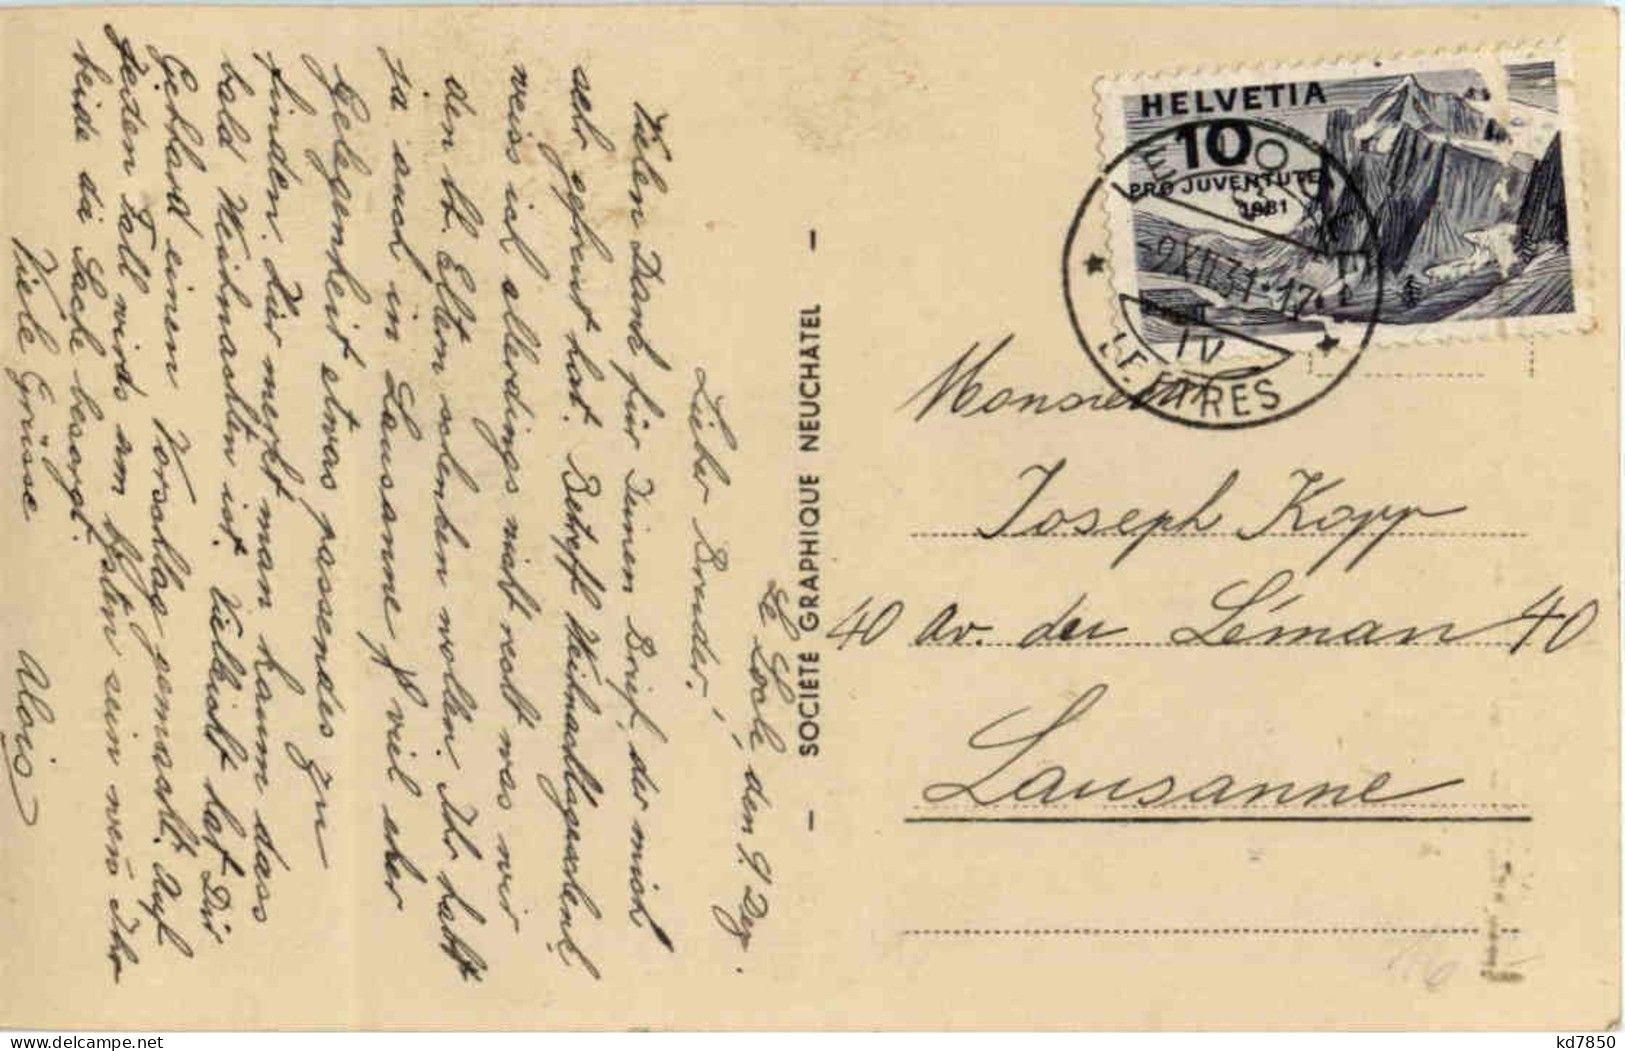 Le Locle den 9. Dez.
Lieber Bruder!
Vielen Dank für Deinen Brief, der mich
sehr gefreut hat. Betreff Weihnachtsgeschenk
weiss ich allerdings nicht recht was wir
den lb. Eltern schenken wollen. Ihr habt
ja auch in Lausanne viel eher
Gelegenheit etwas passendes zu
finden. Hier merkt man kaum dass
bald Weihnachten ist. Vielleicht hat Dir
Gebhard einen Vorschlag gemacht. Auf
jeden Fall wirds am besten sein wen Ihr
beide die Sache besorgt.
Viele Grüsse
Alois
— SOCIÉTÉ GRAPHIQUE NEUCHATEL —
HELVETIA
10
PRO JUVENTUTE
1931
LE LOCLE
-9.XII.31-17
IV
LETTRES
Monsieur
Joseph Kopp
40 Av. du Léman 40
Lausanne
kd7850